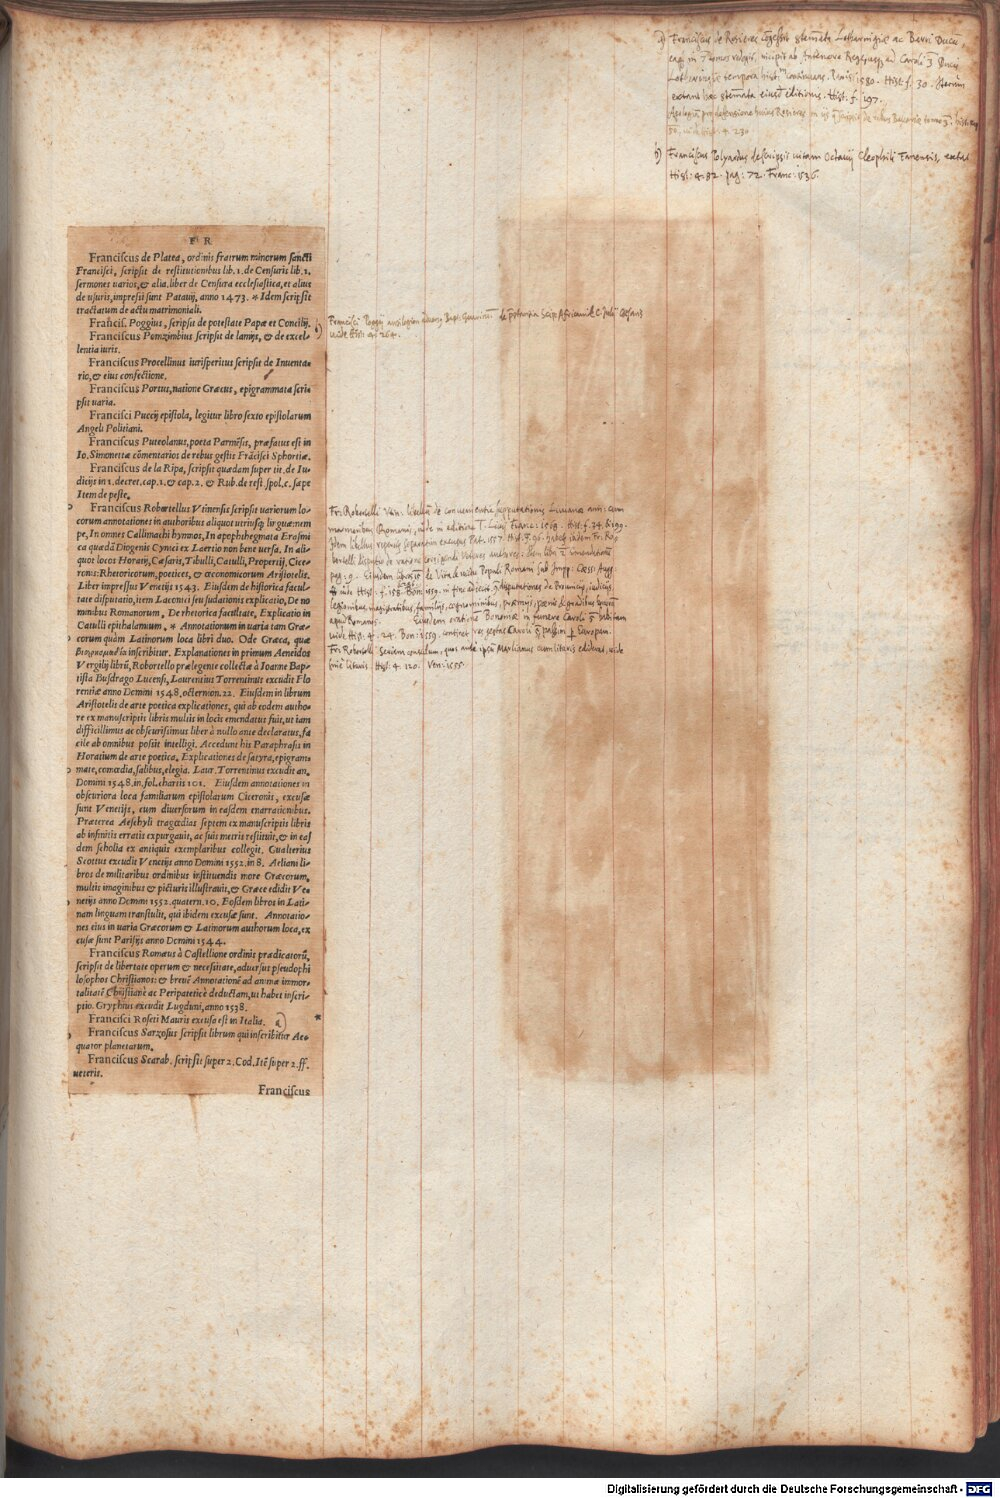 a) Franciscus de Rosieres congessit stemata Lotharingiae ac Barri Ducu,
eaq in 7 tomos redegit, incipit ab Antenore ad Caroli 3 Ducis
Lotharingie tempora hist. continuans. Paris: 1580. Hist. f. 30. Iterum
extant haec stemata eiusd editionis. Hist. f. 197.
Apologium pro defensione huius Rosieres in de rebus tomo 3. hist.
50. vide Hist. 4. 230
b) Franciscus Polyardus descripsit vitam Octavij Cleophili Fanensis, extat
Hist: 4. 82. pag: 72. Franc: 1536.
F R
Franciscus de Platea, ordinis fratrum minorum sancti
Francisci, scripsit de restitutionibus lib. 1. de Censuris lib. 1.
sermones uarios, & alia. liber de Censura ecclesiastica, et alius
de usuris, impressi sunt Patauij, anno 1473. * Idem scripsit
tractatum de actu matrimoniali.
Francis. Poggius, scripsit de potestate Papæ et Concilij.
b)
Francisci Poggij de præstantia Scip: Africani & C. Julij Cæsaris
vide Hist: 4. 264.
Franciscus Ponzimbius scripsit de lamijs, & de excel-
lentia iuris.
Franciscus Procellinus iurisperitus scripsit de Inuenta-
rio, & eius confectione.
Franciscus Portus, natione Græcus, epigrammata scri-
psit uaria.
Francisci Puccij epistola, legitur libro sexto epistolarum
Angeli Politiani.
Franciscus Puteolanus, poeta Parmēsis, præfatus est in
Io. Simonettæ cōmentarios de rebus gestis Frācisci Sphortiæ.
Franciscus de la Ripa, scripsit quædam super tit. de Iu-
dicijs in 1. decret. cap. 1. & cap. 2. & Rub. de rest. spol. c. sæpe
Item de peste.
Franciscus Robortellus Vtinensis scripsit uariorum lo-
corum annotationes in authoribus aliquot utriusq; linguæ: nem
pe, In omnes Callimachi hymnos, In apophthegmata Erasmi
ca quædā Diogenis Cynici ex Laertio non bene uersa. In ali-
quot locos Horatij, Cæsaris, Tibulli, Catulli, Propertij, Cice-
ronis: Rhetoricorum, poetices, & œconomicorum Aristotelis.
Liber impressus Venetijs 1543. Eiusdem de historica facul-
tate disputatio, item Laconici seu sudationis explicatio, De no
minibus Romanorum, De rhetorica facultate, Explicatio in
Catulli epithalamium. * Annotationum in uaria tam Græ-
corum quàm Latinorum loca libri duo. Ode Græca, quæ
inscribitur. Explanationes in primum Aeneidos
Vergilij librū, Robortello prælegente collectæ à Ioanne Bap-
tista Busdrago Lucensi, Laurentius Torrentinus excudit Flo
rentiæ anno Domini 1548. octernion. 22. Eiusdem in librum
Aristotelis de arte poetica explicationes, qui ab eodem autho-
re ex manuscriptis libris multis in locis emendatus fuit, ut iam
difficillimus ac obscurissimus liber à nullo ante declaratus, fa
cile ab omnibus possit intelligi. Accedunt his Paraphrasis in
Horatium de arte poetica. Explicationes de satyra, epigram-
mate, comœdia, salibus, elegia. Laur. Torrentinus excudit an.
Domini 1548. in fol. chartis 101. Eiusdem annotationes in
obscuriora loca familiarum epistolarum Ciceronis, excusæ
sunt Venetijs, cum diuersorum in easdem enarrationibus.
Præterea Aeschyli tragœdias septem ex manuscriptis libris
ab infinitis erratis expurgauit, ac suis metris restituit, & in eas
dem scholia ex antiquis exemplaribus collegit. Gualterius
Scottus excudit Venetijs anno Domini 1552. in 8. Aeliani li-
bros de militaribus ordinibus instituendis more Græcorum,
multis imaginibus & picturis illustrauit, & Græce edidit Ve-
netijs anno Domini 1552. quatern. 10. Eosdem libros in Lati-
nam linguam transtulit, qui ibidem excusæ sunt. Annotatio-
nes eius in uaria Græcorum & Latinorum authorum loca, ex
cusæ sunt Parisijs anno Domini 1544.
Franciscus Romæus à Castellione ordinis prædicatorū,
scripsit de libertate operum & necessitate, aduersus pseudophi
losophos Christianos: & breuē Annotationē ad animæ immor-
talitatē Christianè ac Peripateticè deductam, ut habet inscri-
ptio. Gryphius excudit Lugduni, anno 1538.
Francisci Roseti Mauris excusa est in Italia. a) *
Franciscus Sarzosus scripsit librum qui inscribitur Ae-
quator planetarum.
Franciscus Scarab. scripsit super 2. Cod. Itē super 2. ff.
ueteris.
Franciscus
Fr: Robortelli libellus de convenientia supputationis Livianæ ann: cum
marmoribus Romanis, vide in editione T. Livij Franc: 1568. Hist. f. 34. & 199.
Idem libellus separatim excusus Pat: 1557. Hist. f. 96. habet iidem Fr. Ro-
bortelli disputatio de ratione corrigendi Veteres authores: Item libri 2 emendationū
pag: 9. Eiusdem libros 15 de Vita & victu Populi Romani sub Impp: Cæss: Augg:
vide Hist: f. 158. Bon: 1559. in fine adiecit disputationes de Provincijs, iudicijs,
legionibus, magistratibus, familijs, cognominibus, præmijs, poenis & gradibus honorū
apud Romanos. Eiusdem orationē Bononiæ in funere Caroli 5 habitam
vide Hist: 4. 24. Bon: 1559. continet res gestas Caroli 5 passim p Europam.
Fr: Robortelli Seriem consulum, quos ante ipsū Marlianus cum literis ediderat, vide
sine literis Hist: 4. 120. Ven: 1555.
Digitalisierung gefördert durch die Deutsche Forschungsgemeinschaft - DFG